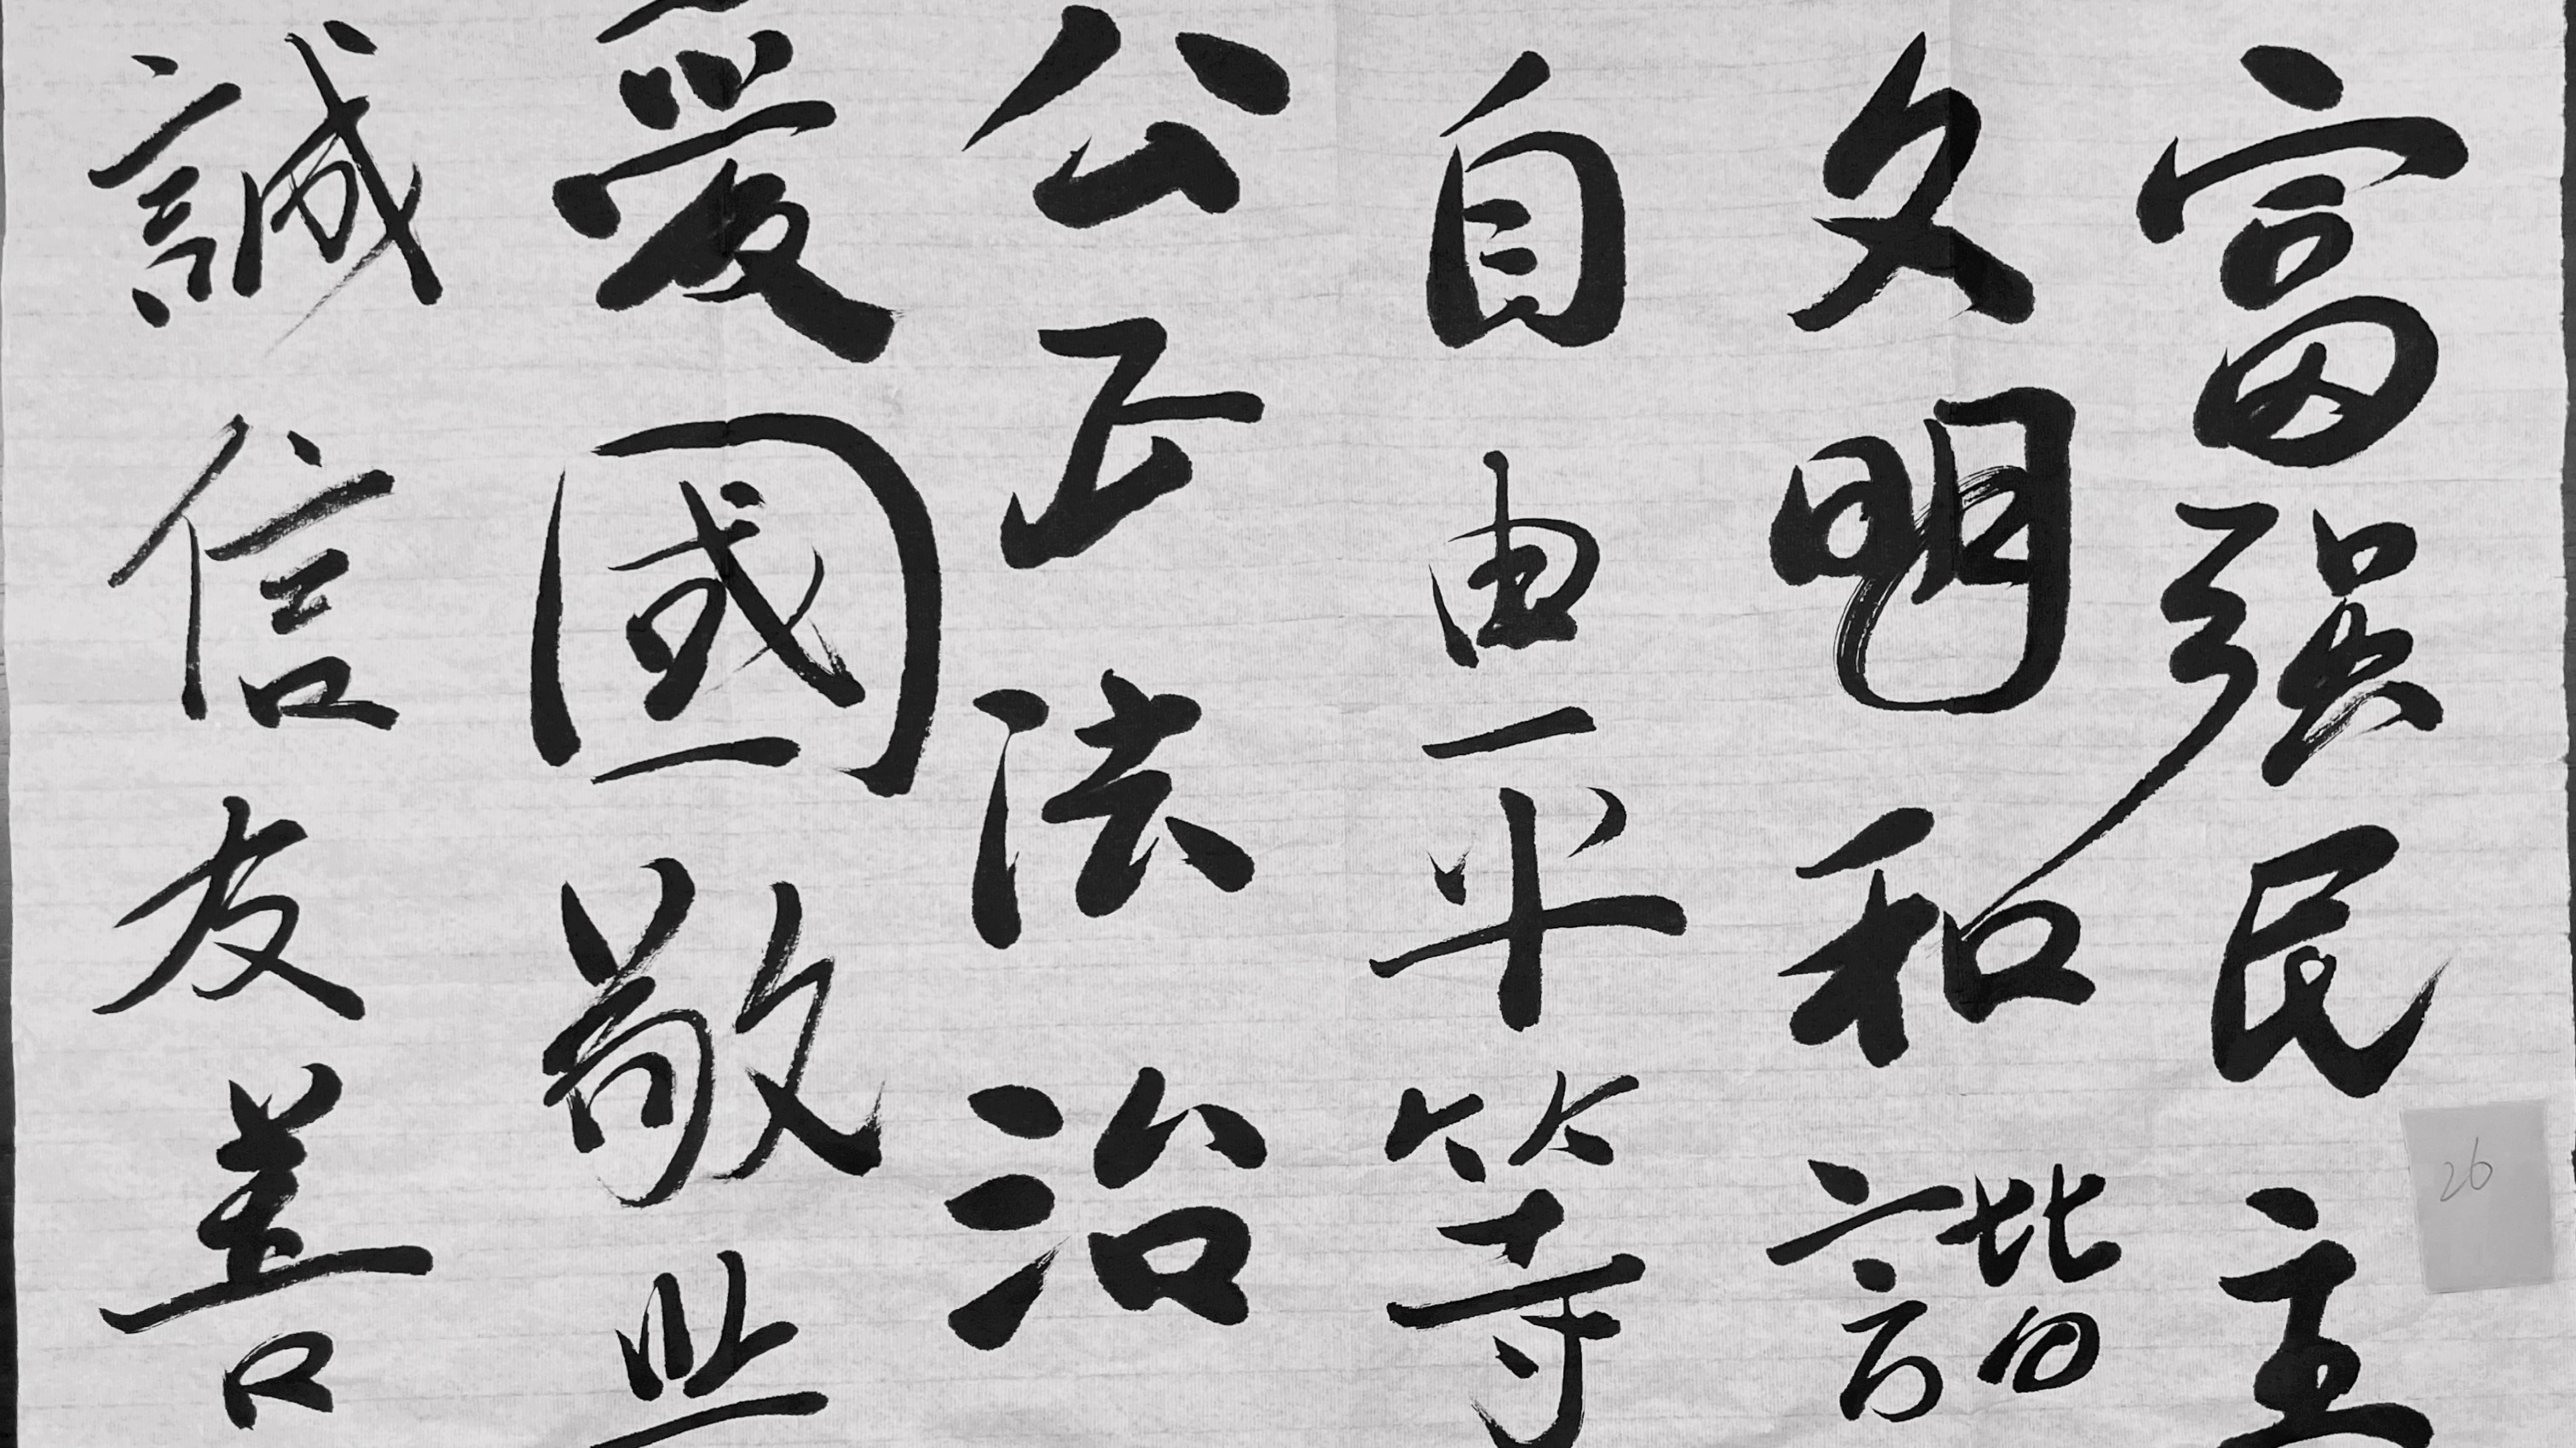 富强民主
文明和諧
自由平等
公正法治
愛國敬业
誠信友善
26